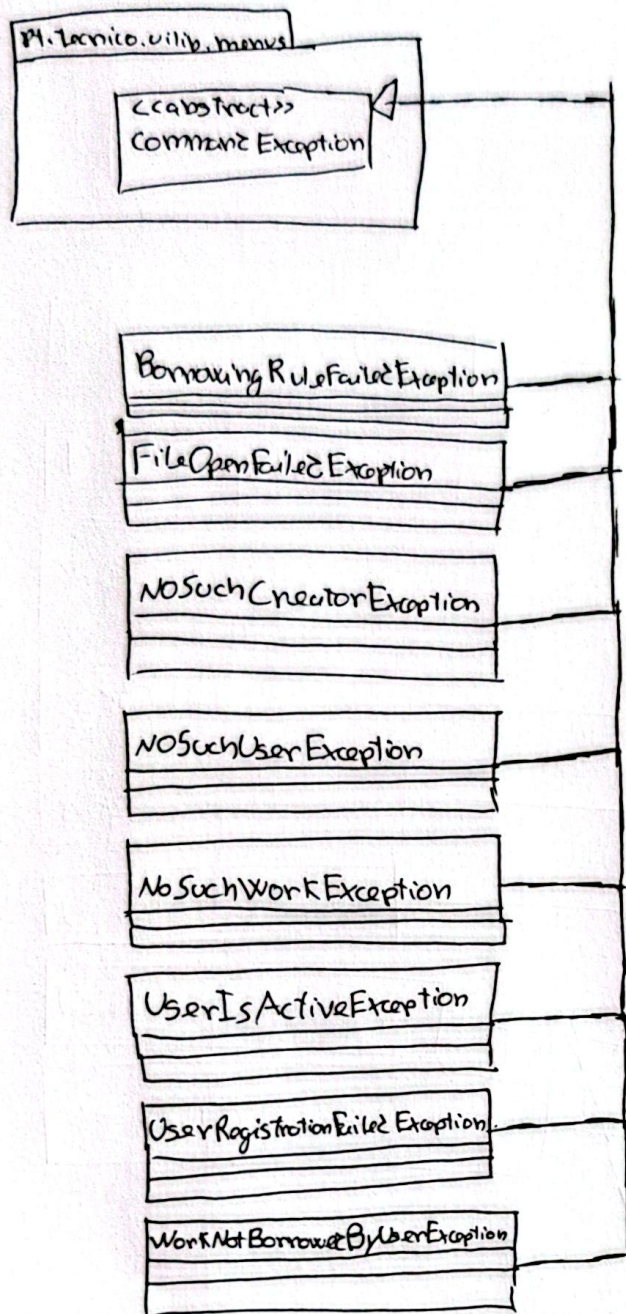 pt.tecnico.uilib.menus
<<abstract>>
Command Exception
BorrowingRuleFailedException
FileOpenFailedException
NoSuchCreatorException
NoSuchUserException
NoSuchWorkException
UserIsActiveException
UserRegistrationFailedException
WorkNotBorrowedByUserException